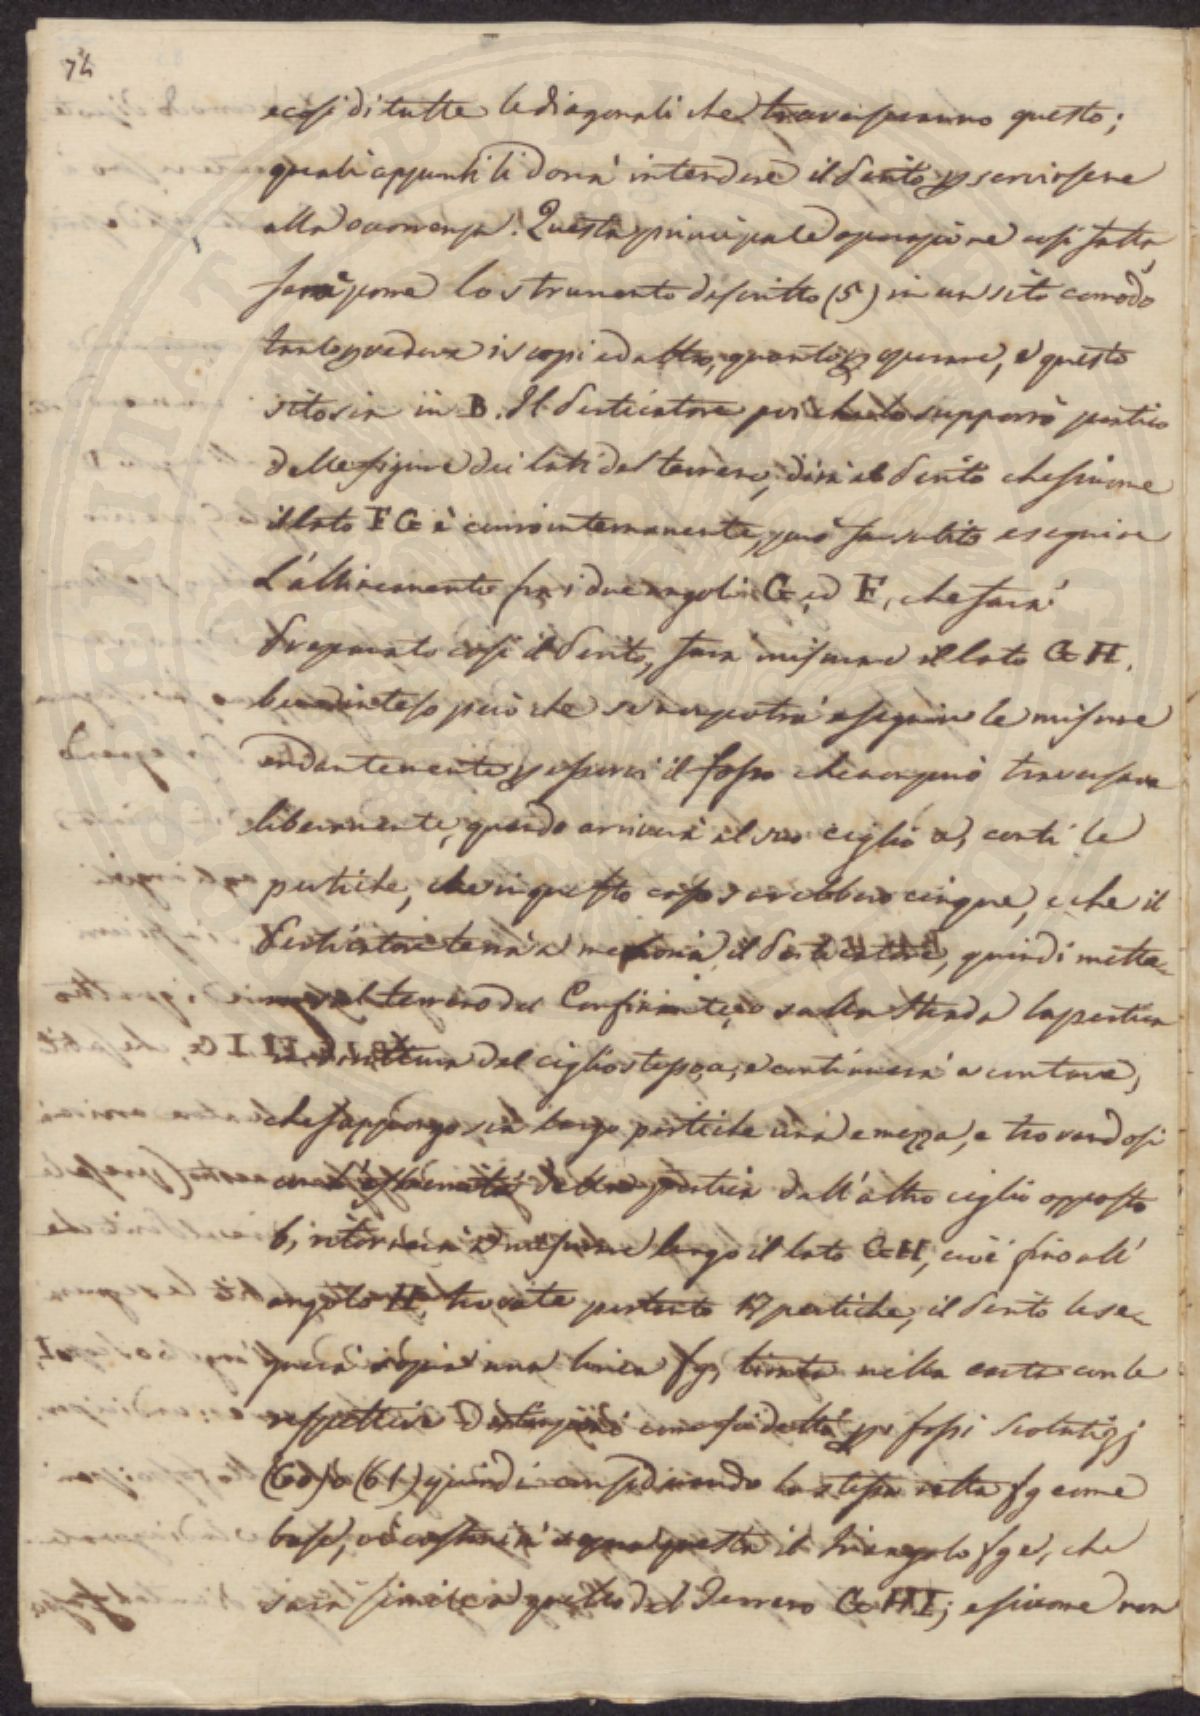 74
e così di tutte le diagonali che traverseranno questo;
quali appunti li dovrà intendere il Perito per servirsene
alla occorrenza. Questa principale operazione così fatta,
farà porre lo strumento descritto (5) in un sito comodo
tanto per vedere i scopi ed altro, quanto per operare, e questo
sito sia in B. Il Perticatore poi che lo supporrò pratico
delle figure dei lati del terreno, dirà al Perito che siccome
il lato FG è curvo internamente, però fa subito eseguire
l'allineamento fra i due angoli G, ed F, che sarà
Preparato così il Perito, farà misurare il lato GH,
beninteso però che si non potrà eseguire le misure
andantemente per esservi il fosso che non può traversare
liberamente, quando arriverà al suo ciglio a, conti le
pertiche, che in questo caso sarebbero cinque, e che il
Perticatore terrà a memoria il Perticatore, quindi mette-
terreno del Confinante, o sulla strada la pertica
del ciglio stesso a, e continuerà a contare,
che suppongo sia lungo pertiche una e mezza, e trovandosi
con l'estremità della pertica dall'altro ciglio opposto
b, ritornerà a misurare lungo il lato GH, cioè fino all'
angolo H, trovate pertanto 17 pertiche, il Perito le se-
guerà sopra una linea fg, tirata nella carta con le
respettive Distinzioni come fu detto per fossi scolatizj
(60) o (61) quindi considerando la stessa retta fg come
base, vi costruirà sopra questa il triangolo fge, che
sarà simile a quello del Terreno GHI; e siccome non